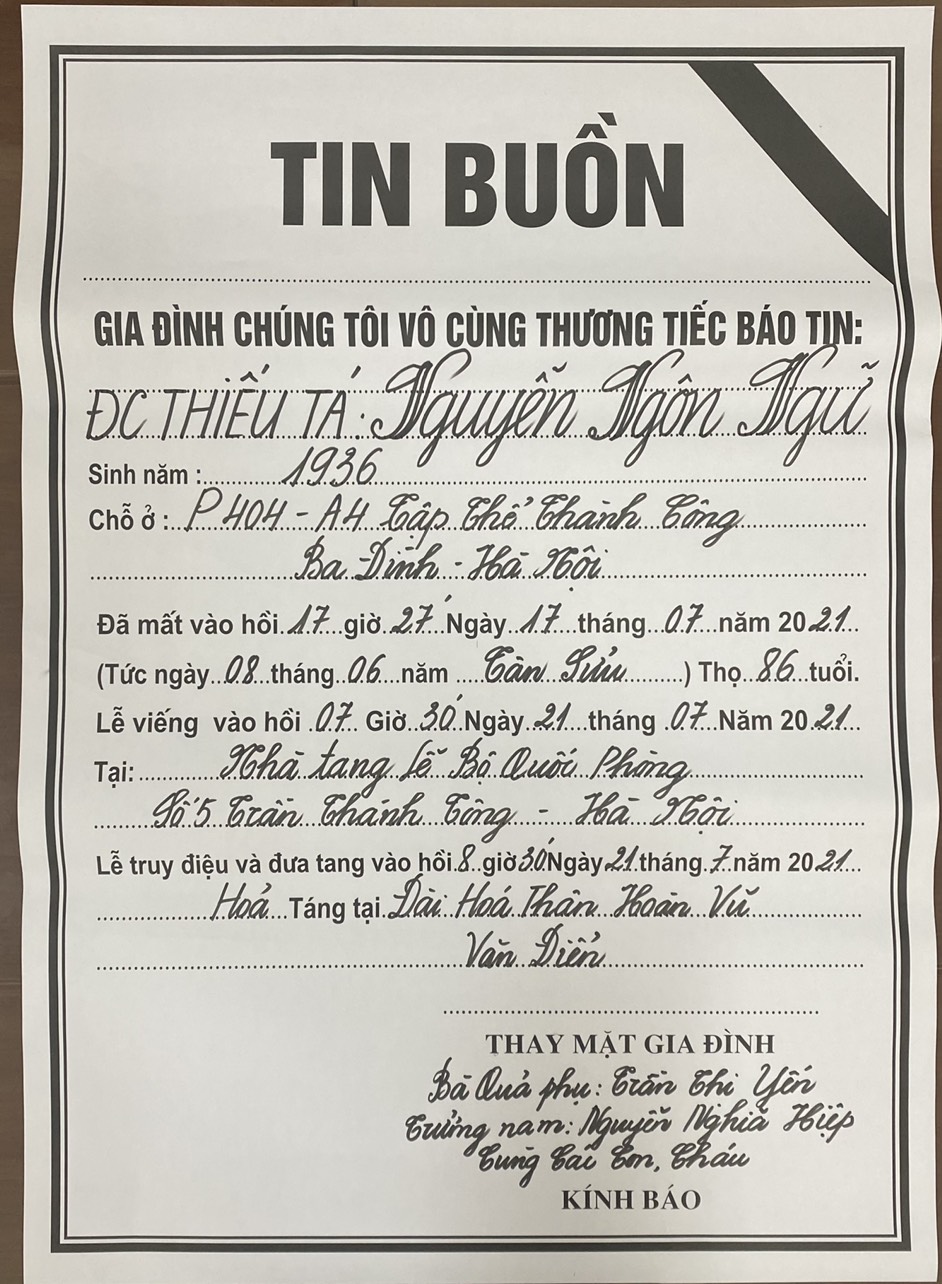 TIN BUỒN
GIA ĐÌNH CHÚNG TÔI VÔ CÙNG THƯƠNG TIẾC BÁO TIN:
ĐC THIẾU TÁ: Nguyễn Ngôn Ngữ
Sinh năm : 1936
Chỗ ở : P404 - A4 Tập Thể Thành Công
Ba Đình - Hà Nội
Đã mất vào hồi 17 giờ 27' Ngày 17 tháng 07 năm 2021
(Tức ngày 08 tháng 06 năm Tân Sửu ) Thọ 86 tuổi.
Lễ viếng vào hồi 07 Giờ 30' Ngày 21 tháng 07 Năm 2021
Tại: Nhà tang lễ Bộ Quốc Phòng
Số 5 Trần Thánh Tông - Hà Nội
Lễ truy điệu và đưa tang vào hồi 8 giờ 30' Ngày 21 tháng 7 năm 2021
Hoả Táng tại Đài Hoá Thân Hoàn Vũ
Văn Điển
THAY MẶT GIA ĐÌNH
Bà Quả phụ: Trần Thi Yến
Trưởng nam: Nguyễn Nghĩa Hiệp
Cùng Các Con, Cháu
KÍNH BÁO